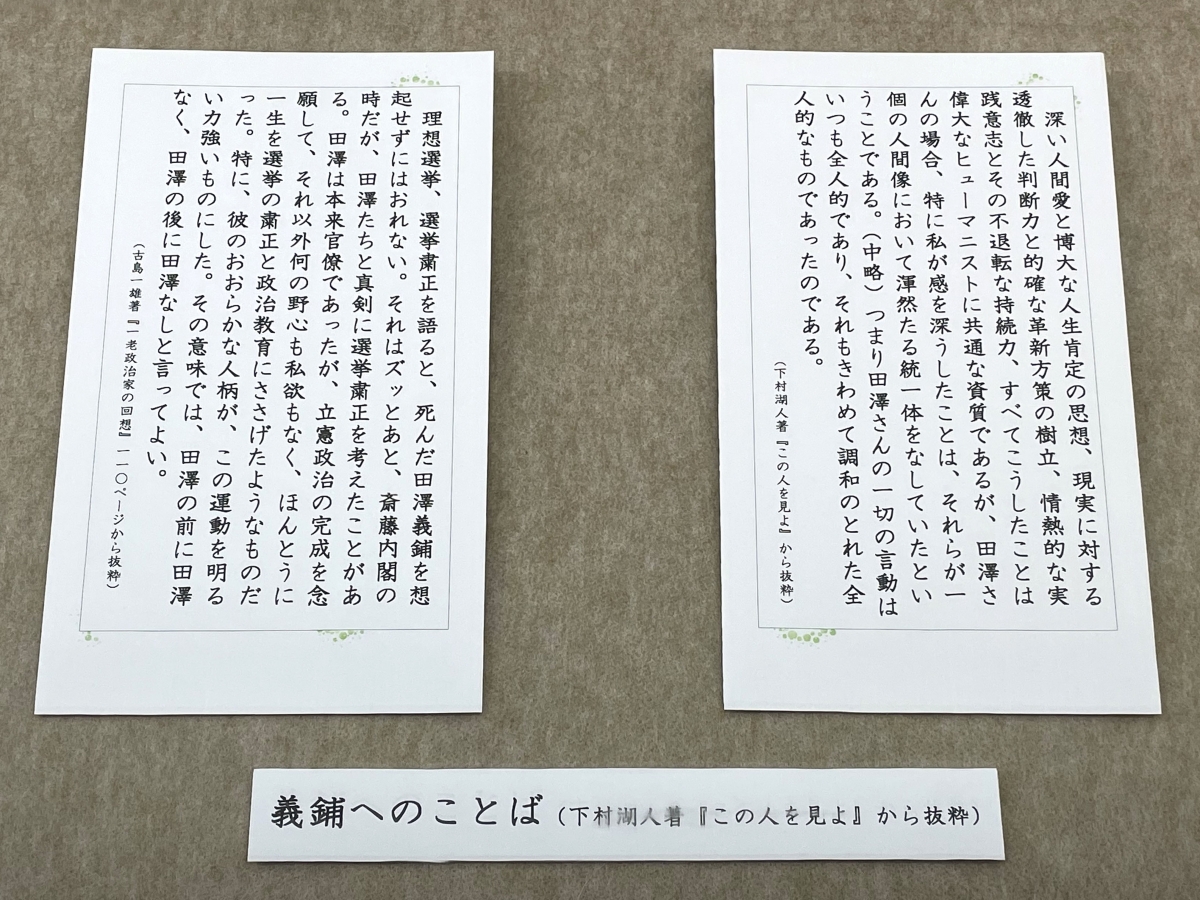 深い人間愛と博大な人生肯定の思想、現実に対する
透徹した判断力と的確な革新方策の樹立、情熱的な実
践意志とその不退転な持続力、すべてこうしたことは
偉大なヒューマニストに共通な資質であるが、田澤さ
んの場合、特に私が感を深うしたことは、それらが一
個の人間像において渾然たる統一体をなしていたとい
うことである。（中略）つまり田澤さんの一切の言動は
いつも全人的であり、それもきわめて調和のとれた全
人的なものであったのである。
（下村湖人著『この人を見よ』から抜粋）
理想選挙、選挙粛正を語ると、死んだ田澤義鋪を想
起せずにはおれない。それはズッとあと、斎藤内閣の
時だが、田澤たちと真剣に選挙粛正を考えたことがあ
る。田澤は本来官僚であったが、立憲政治の完成を念
願して、それ以外何の野心も私欲もなく、ほんとうに
一生を選挙の粛正と政治教育にささげたようなものだ
った。特に、彼のおおらかな人柄が、この運動を明る
い力強いものにした。その意味では、田澤の前に田澤
なく、田澤の後に田澤なしと言ってよい。
（古島一雄著『一老政治家の回想』一一〇ページから抜粋）
義鋪へのことば（下村湖人著『この人を見よ』から抜粋）